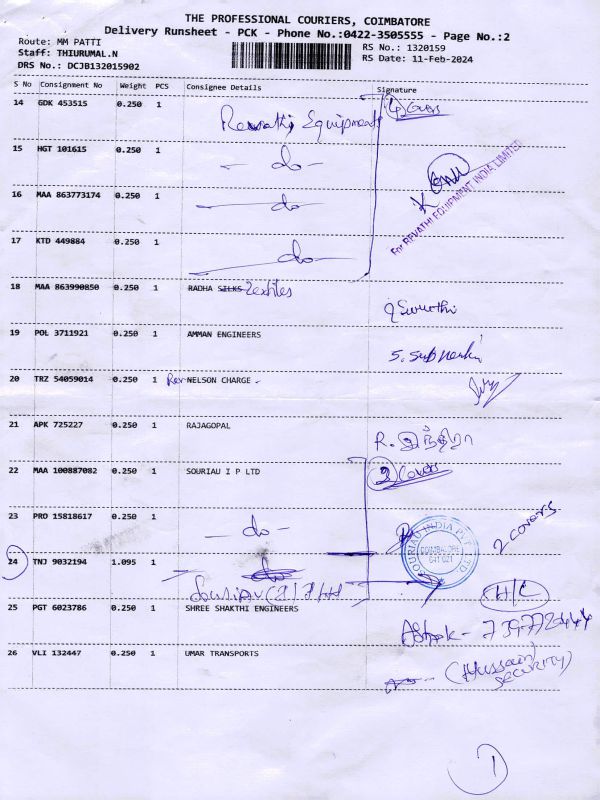 THE PROFESSIONAL COURIERS, COIMBATORE
Delivery Runsheet - PCK - Phone No.:0422-3505555 - Page No.:2
Route: MM PATTI
RS No.: 1320159
Staff: THIRUMAL.N
RS Date: 11-Feb-2024
DRS No.: DCJB132015902
S No Consignment No Weight PCS Consignee Details Signature
14 GDK 453515 0.250 1 Revathi Equipments 4 Covers
15 HGT 101615 0.250 1 - do -
For REVATHI EQUIPMENT INDIA LIMITED
16 MAA 863773174 0.250 1 - do -
17 KTD 449884 0.250 1 do
18 MAA 863990850 0.250 1 RADHA SILKS Textiles
19 POL 3711921 0.250 1 AMMAN ENGINEERS
20 TRZ 54059014 0.250 1 Rev NELSON CHARGE.
21 APK 725227 0.250 1 RAJAGOPAL
R. இந்திரா
22 MAA 100887082 0.250 1 SOURIAU I P LTD Covers
23 PRO 15818617 0.250 1 - do - 2 covers
SOURIAU INDIA PVT LTD
COIMBATORE
641 021
24 TNJ 9032194 1.095 1 do
H/C
25 PGT 6023786 0.250 1 SHREE SHAKTHI ENGINEERS
26 VLI 132447 0.250 1 UMAR TRANSPORTS
(Hussain
SECURITY)
1